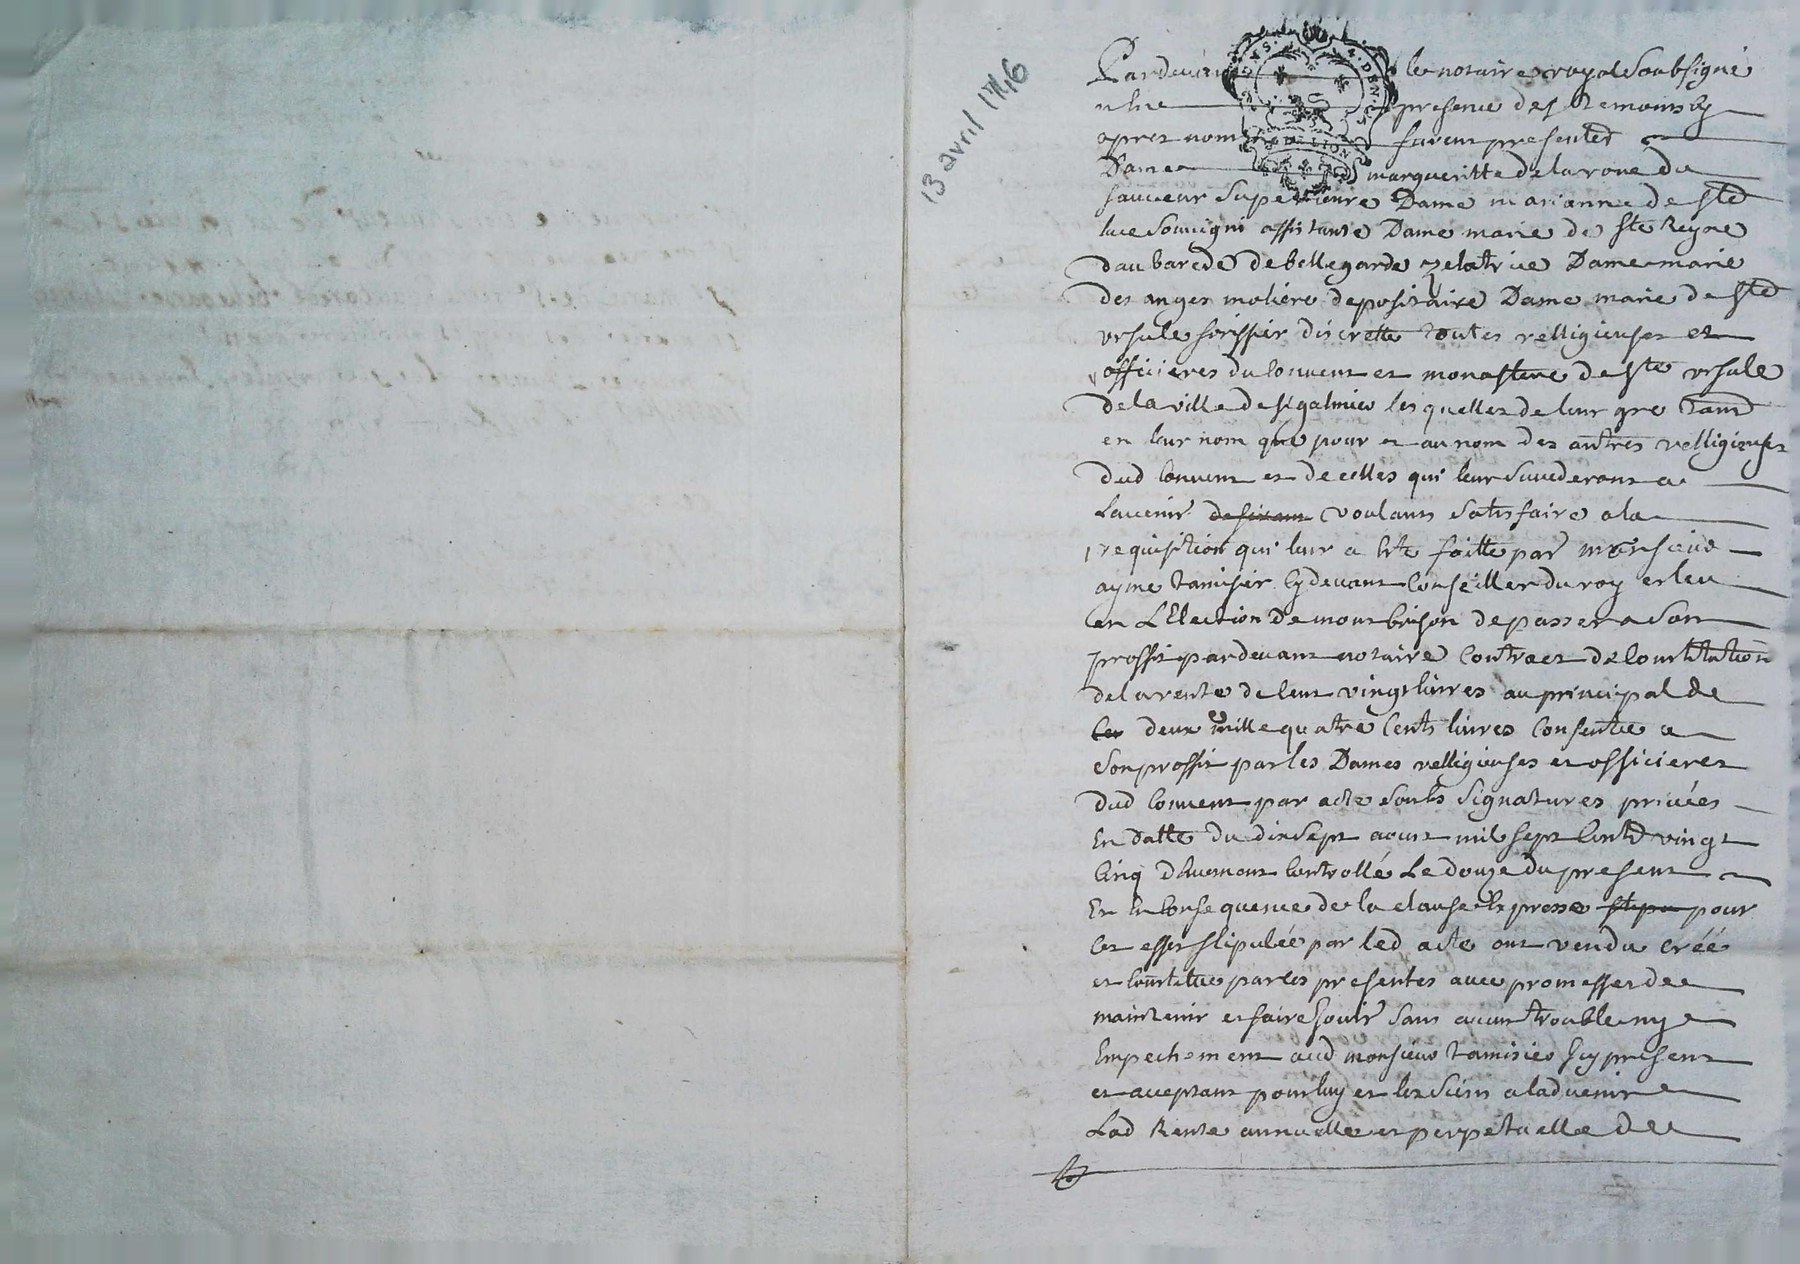 13 avril 1726
Pardevant le notaire royal Soubsigné
en la presence des temoins cy
apres nommes furent presentes
Dame margueritte de la roue du
sauveur Superieure Dame marianne de Ste
luce Souvigni assistante Dame marie de Ste Reyne
daubarede de bellegarde zelatrice Dame marie
des anges molière depositaire Dame marie de Ste
ursule discrette toutes relligieuses et
officières du Couvent et monastere de Ste ursule
de la ville de St galmier lesquelles de leur gre tant
en leur nom que pour et au nom des autres relligieuses
dud Couvent et de celles qui leur Succederont a
Lavenir desirant voulant Satisfaire a la
requisition qui leur a Ete faitte par monsieur
ayme tamisier Cy devant Conseiller du roy esleu
en L'Election de montbrison de passer a Son
proffit pardevant notaire Contract de Constitution
de la rente de Cent vingt livres au principal de
Ces deux mille quatre Cents livres Consentie a
Son proffit par les Dames relligieuses et officieres
dud Couvent par acte Soubs Signatures privées
En datte du dixSept aoust mil Sept Cents vingt
Cinq duement Controllé Le douze du present
En En Consequence de la clause Expresse stipu pour
Cet effet Stipulée par led acte ont vendu créé
et Constitue par ces presentes avec promesses de
maintenir et faire Jouir Sans aucun trouble ny
Empechement aud monsieur tamisier Icy present
et acceptant pour luy et les Siens a ladvenir
Lad Rente annuelle et perpetuelle de